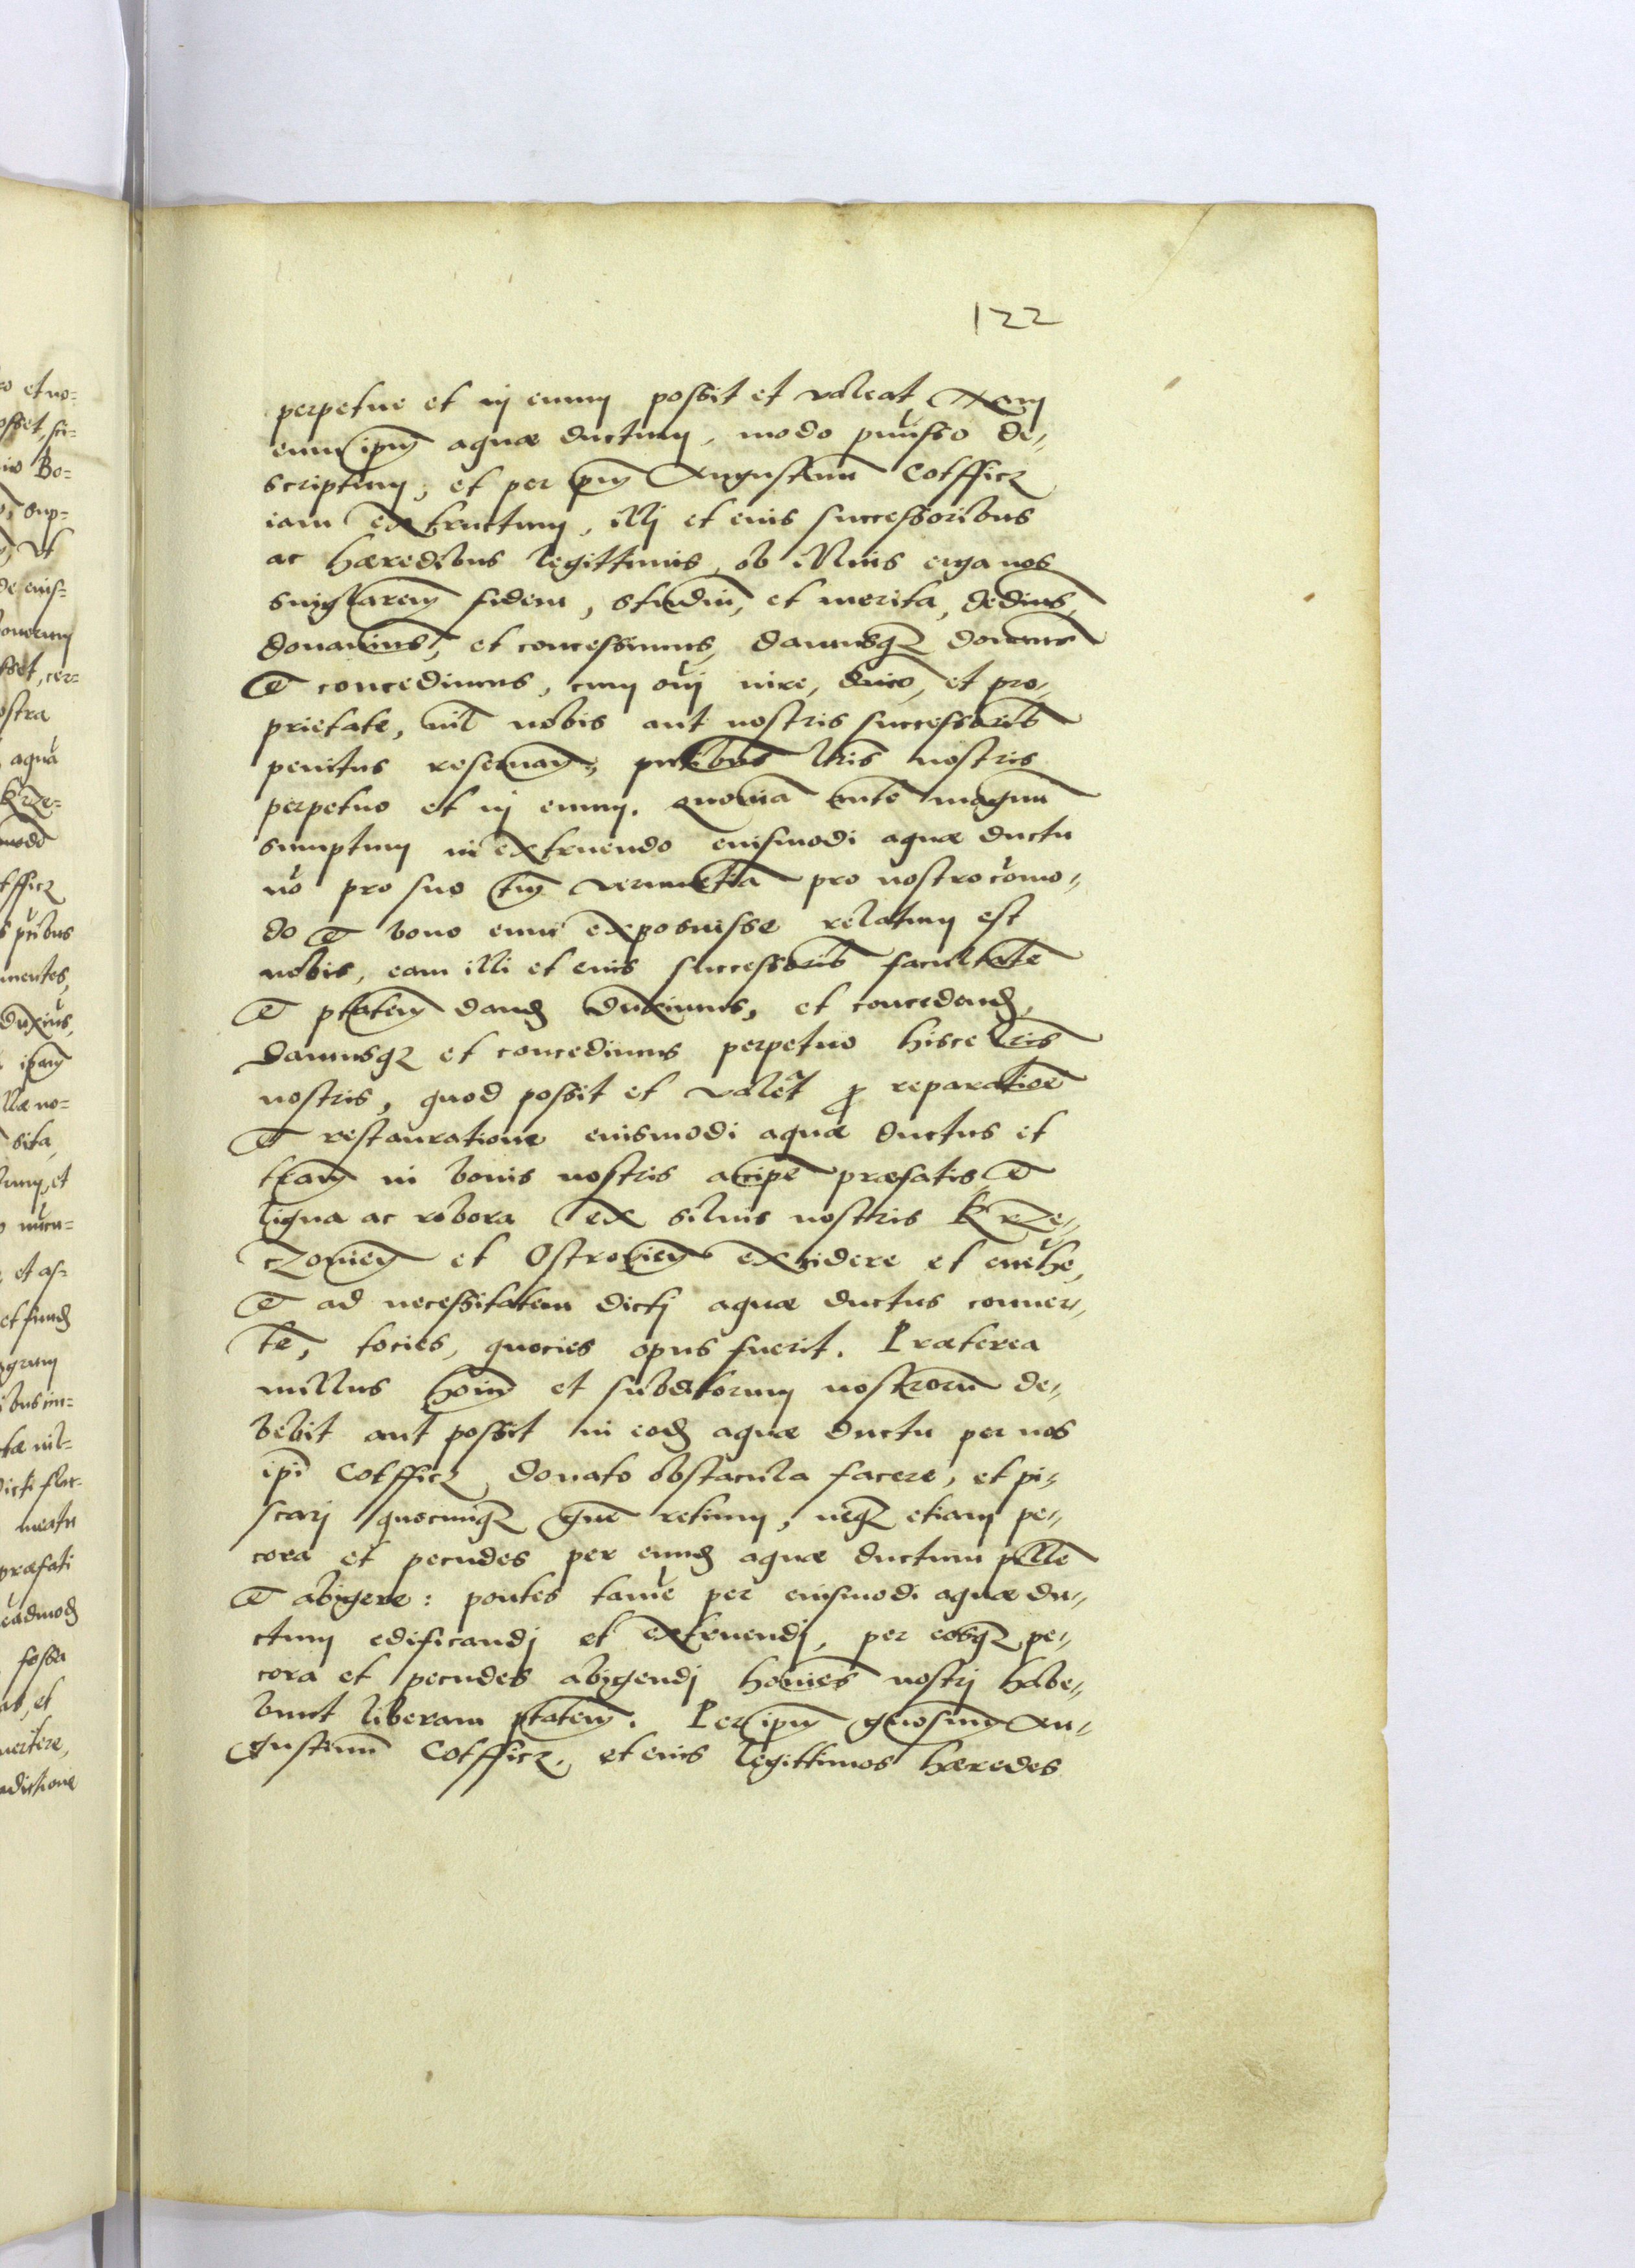 122
perpetue et in euum possit et valeat
eum ipm̄ aquæ ductum, modo pmisso de,,
scriptum, et per ipm̄ Augustinū Cotfficz
iam extructum, illi et eius successoribus
ac hæredibus legittimis, ob illius erga nos
singlarem fidem, studiū, et merita, dedim̄s,
donauim̄s, et concessimus, damusqz donamus
et concedimus, cum oī iure, dnīo, et pro,,
prietate, nil nobis aut nostris successorib̄s
penitus reseruan̄., pn̄tibus lrīs nostris
perpetuo et in euum. Quoniā autē magnū
sumptum in extruendo eiusmodi aquæ ductu
nō pro suo tm̄ verumetiā pro nostro com̄o,,
do et bono eum exposuisse relatum est
nobis, eam illi et eius successorib̄s facultatē
et ptātem dand̄ duximus, et concedend̄,
damusqz et concedimus perpetuo hisce lrīs
nostris, quod possit et valēt p̱ reparatiōe
et restauratione eiusmodi aquæ ductus et
trām in bonis nostris accipē præfatis, et
ligna ac robora ex siluis nostris Krze,,
czouien̄ et Ostrouien̄ excidere et euehē,
et ad necessitatem dicti aquæ ductus conuer,,
tē, tocies, quocies opus fuerit. Præterea
nullus hoīm̄ et subditorum nostrorū de,,
bebit aut possit in eod̄ aquæ ductu per nos
ipī Cotfficz donato obstacula facere, et pi,,
scari quocunqz gn̄e retium, neqz etiam pe,,
cora et pecudes per eund̄ aquæ ductum pellē
et abigere: pontes tamē per eiusmodi aquæ du,,
ctum edificandi et extruendi, per eosqz pe,,
cora et pecudes abigendi homiēs nostri habe,,
bunt liberam ptātem. Per ipm̄ gn̄osum Au,,
gustinū Cotfficz, et eius legittimos hæredes